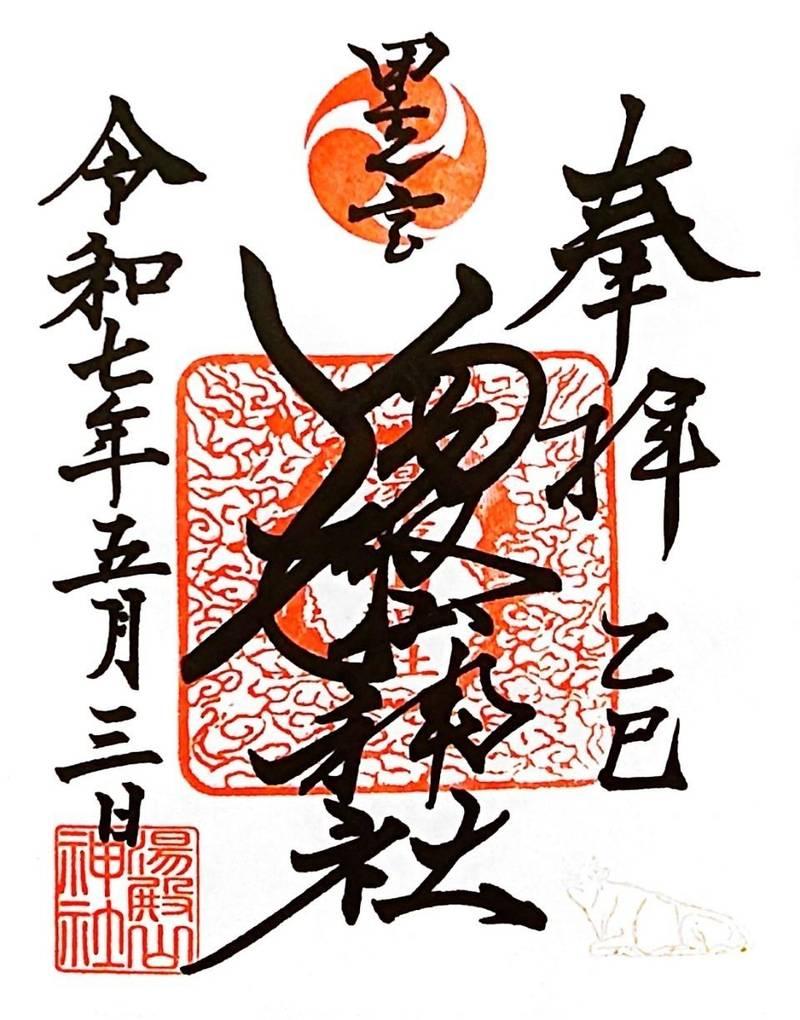 奉拝 乙巳
里之宮
湯殿山神社
令和七年五月三日
湯殿山
神社